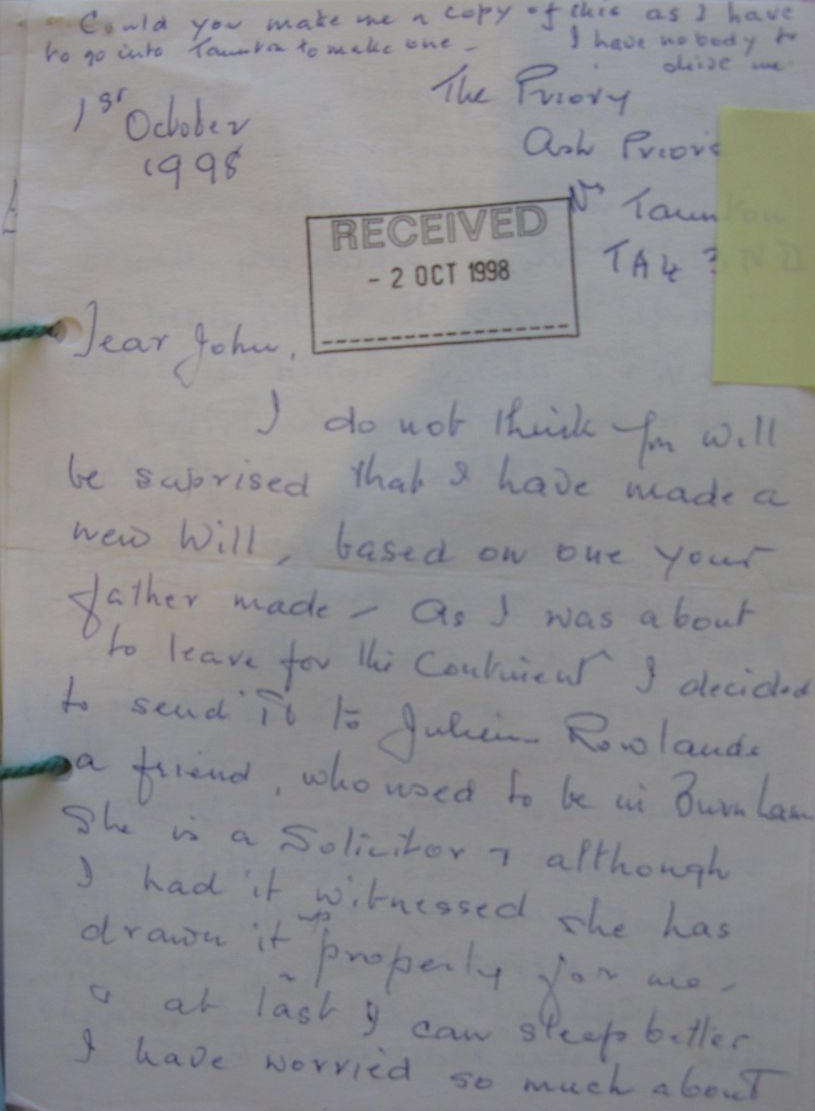 Could you make me a copy of this as I have
to go into Taunton to make one - I have nobody to
drive me
The Priory
1st October
1998
Ash Priors
Nr Taunton
TA4 3ND
RECEIVED
- 2 OCT 1998
Dear John,
I do not think you will
be suprised that I have made a
new Will, based on one your
father made - As I was about
to leave for the Continent I decided
to send it to Rowlands
a friend, who used to be in Burnham
She is a Solicitor & although
I had it witnessed she has
drawn it up properly for me -
& at last I can sleep better
I have worried so much about